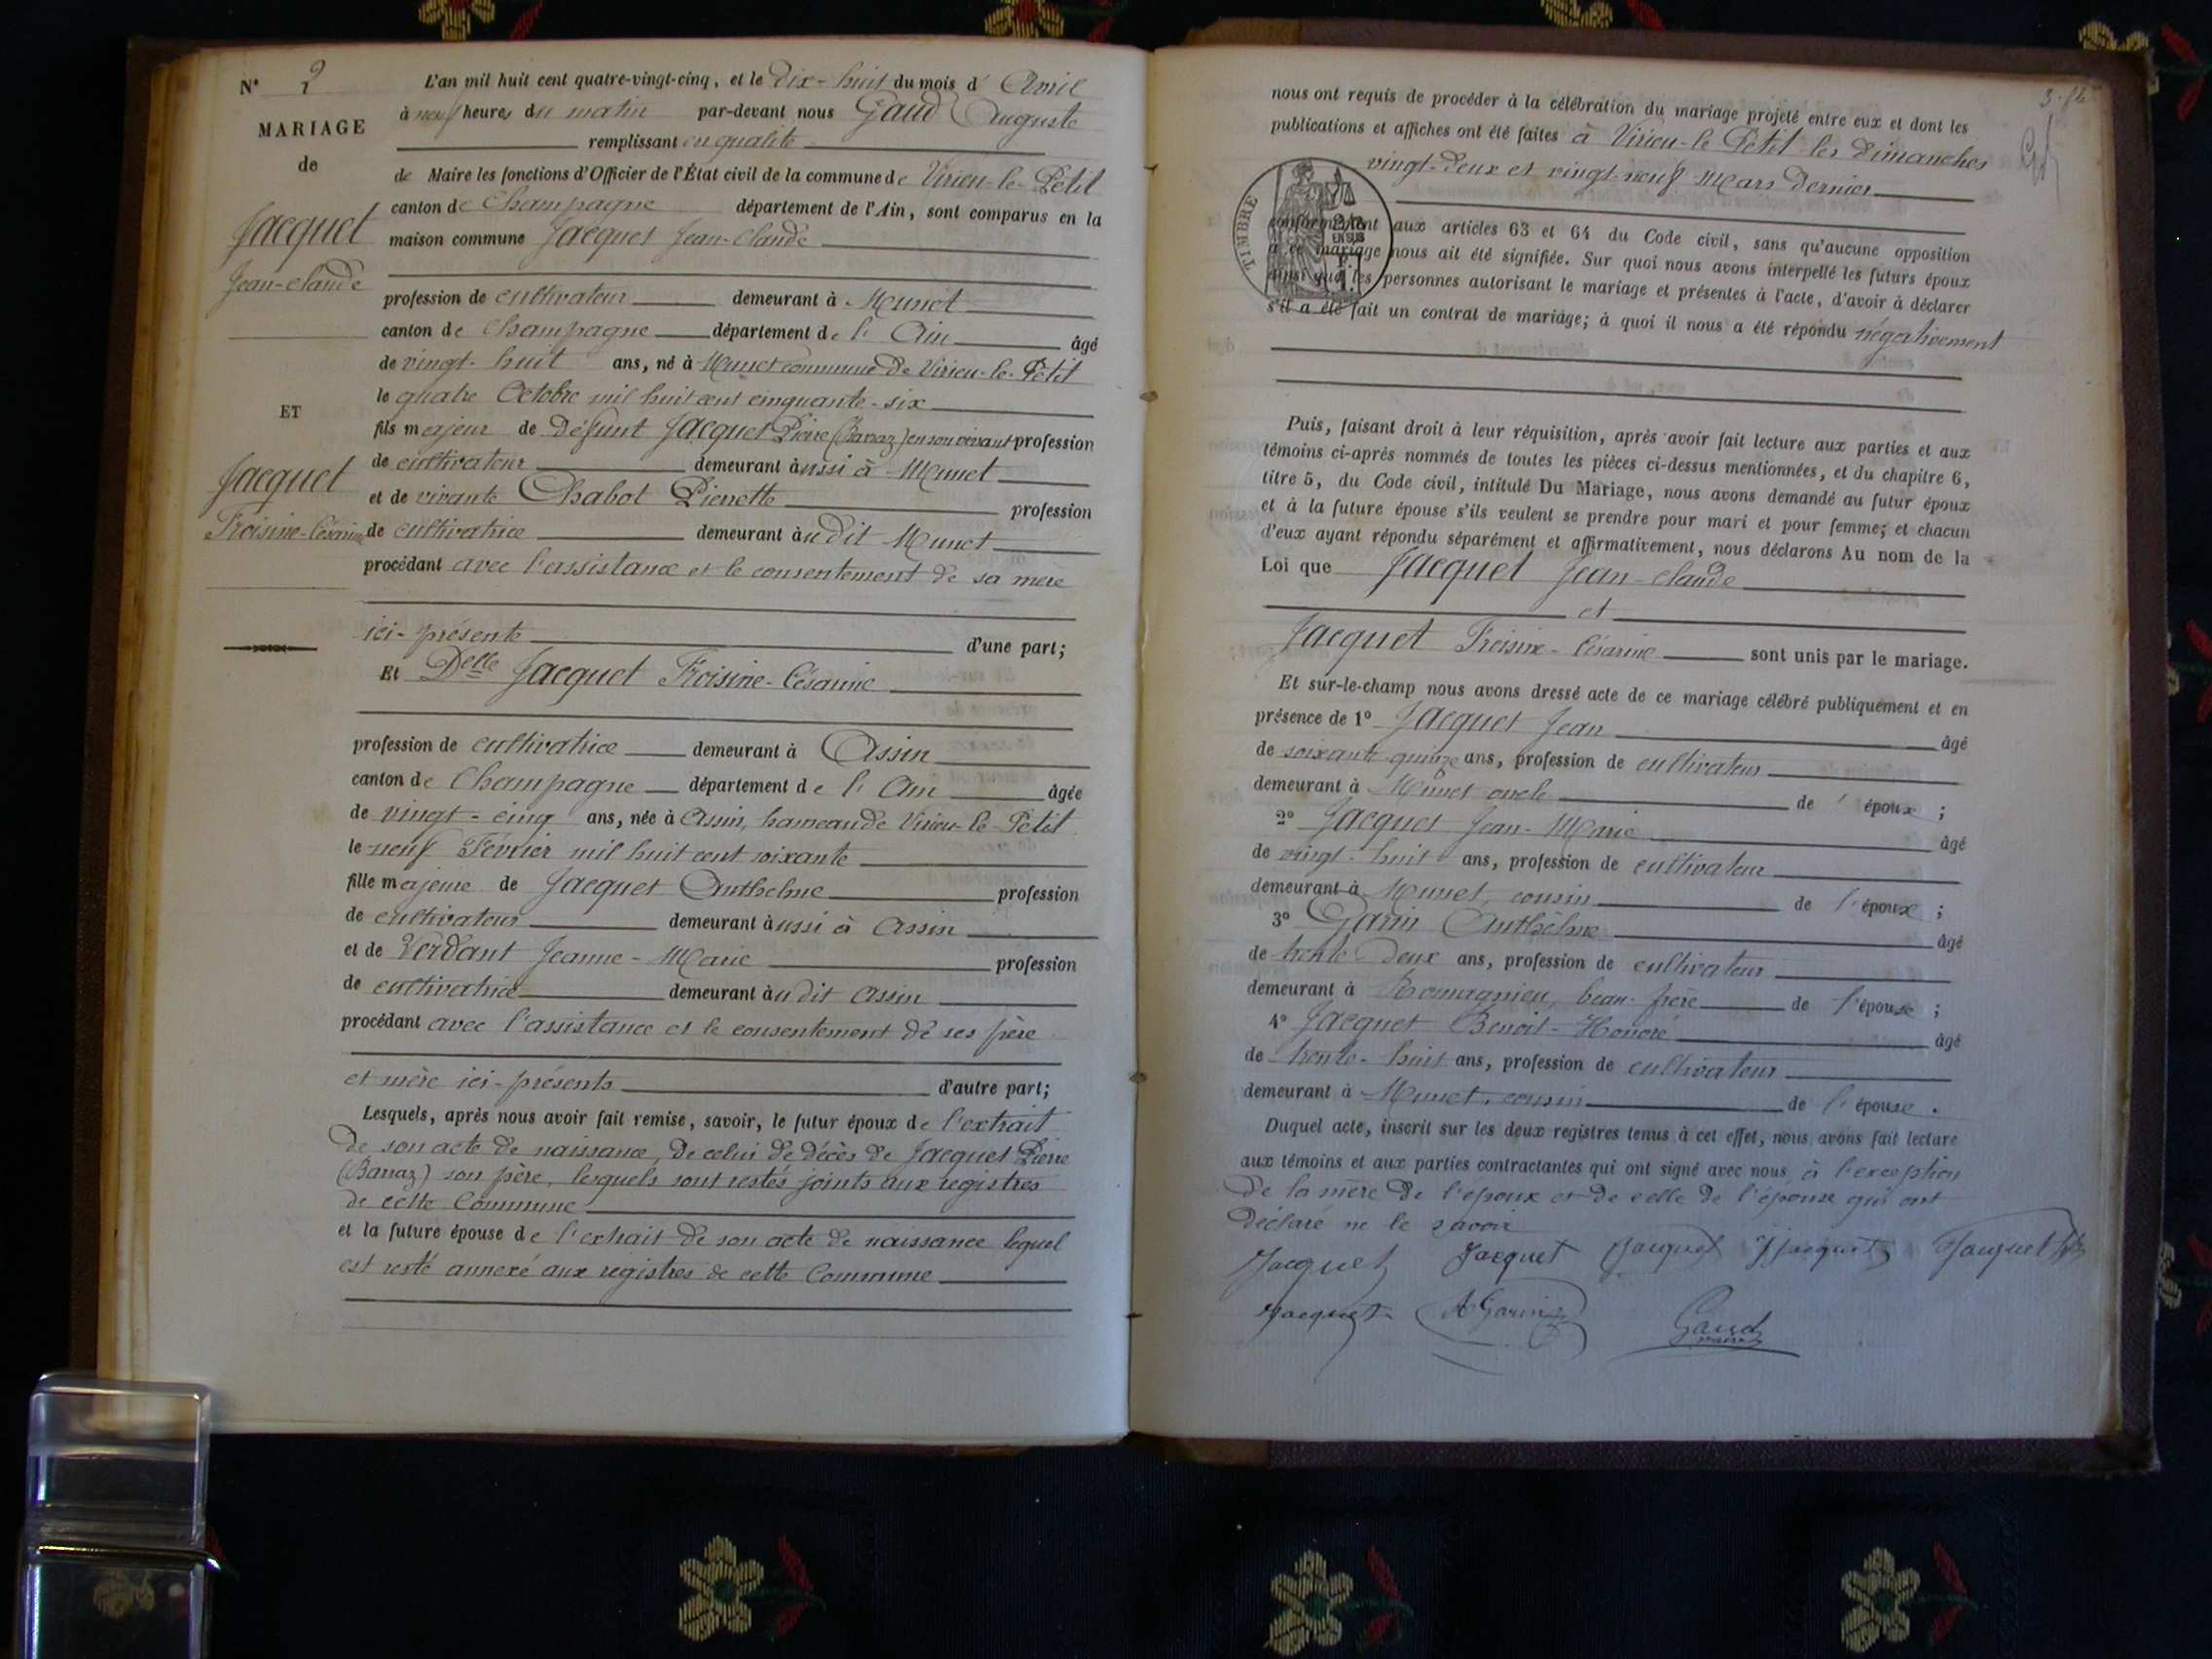 N° 2
MARIAGE
de
Jacquet
Jean-Claude
ET
Jacquet
Froisine-Césarine
L'an mil huit cent quatre-vingt-cinq, et le dix-huit du mois d' Avril
à neuf heures du matin par-devant nous Gaud Auguste
remplissant en qualité
de Maire les fonctions d'Officier de l'État civil de la commune de Virieu-le-Petit
canton de Champagne département de l'Ain, sont comparus en la
maison commune Jacquet Jean-Claude
profession de cultivateur demeurant à Munet
canton de Champagne département de l'Ain âgé
de vingt-huit ans, né à Munet commune de Virieu-le-Petit
le quatre Octobre mil huit cent cinquante-six
fils majeur de défunt Jacquet Pierre (Barraz) en son vivant profession
de cultivateur demeurant aussi à Munet
et de vivante Chabot Pierrette profession
de cultivatrice demeurant audit Munet
procédant avec l'assistance et le consentement de sa mère
ici-présente d'une part;
Et Delle Jacquet Froisine-Césarine
profession de cultivatrice demeurant à Assin
canton de Champagne département de l'Ain âgée
de vingt-cinq ans, née à Assin, hameau de Virieu-le-Petit
le neuf Février mil huit cent soixante
fille majeure de Jacquet Anthelme profession
de cultivateur demeurant aussi à Assin
et de Verdant Jeanne-Marie profession
de cultivatrice demeurant audit Assin
procédant avec l'assistance et le consentement de ses père
et mère ici-présents d'autre part;
Lesquels, après nous avoir fait remise, savoir, le futur époux de l'extrait
de son acte de naissance, de celui de décès de Jacquet Pierre
(Barraz) son père, lesquels sont restés joints aux registres
de cette Commune
et la future épouse de l'extrait de son acte de naissance lequel
est resté annexé aux registres de cette Commune
nous ont requis de procéder à la célébration du mariage projeté entre eux et dont les
publications et affiches ont été faites à Virieu-le-Petit les Dimanches
vingt-deux et vingt-neuf Mars dernier
TIMBRE
conformément aux articles 63 et 64 du Code civil, sans qu'aucune opposition
à ce mariage nous ait été signifiée. Sur quoi nous avons interpellé les futurs époux
ainsi que les personnes autorisant le mariage et présentes à l'acte, d'avoir à déclarer
s'il a été fait un contrat de mariage; à quoi il nous a été répondu négativement
Puis, faisant droit à leur réquisition, après avoir fait lecture aux parties et aux
témoins ci-après nommés de toutes les pièces ci-dessus mentionnées, et du chapitre 6,
titre 5, du Code civil, intitulé Du Mariage, nous avons demandé au futur époux
et à la future épouse s'ils veulent se prendre pour mari et pour femme; et chacun
d'eux ayant répondu séparément et affirmativement, nous déclarons Au nom de la
Loi que Jacquet Jean-Claude
et
Jacquet Froisine-Césarine sont unis par le mariage.
Et sur-le-champ nous avons dressé acte de ce mariage célébré publiquement et en
présence de 1° Jacquet Jean âgé
de soixante quinze ans, profession de cultivateur
demeurant à Munet oncle de l'époux ;
2° Jacquet Jean-Marie âgé
de vingt-huit ans, profession de cultivateur
demeurant à Munet, cousin de l'époux ;
3° Garin Anthelme âgé
de trente deux ans, profession de cultivateur
demeurant à Romagnieu, beau-frère de l'épouse ;
4° Jacquet Benoit-Honoré âgé
de trente-huit ans, profession de cultivateur
demeurant à Munet, cousin de l'épouse.
Duquel acte, inscrit sur les deux registres tenus à cet effet, nous avons fait lecture
aux témoins et aux parties contractantes qui ont signé avec nous à l'exception
de la mère de l'époux et de celle de l'épouse qui ont
déclaré ne le savoir
Jacquet Jacquet Jacquet Jacquet Jacquet
Jacquet A Garin Gaud